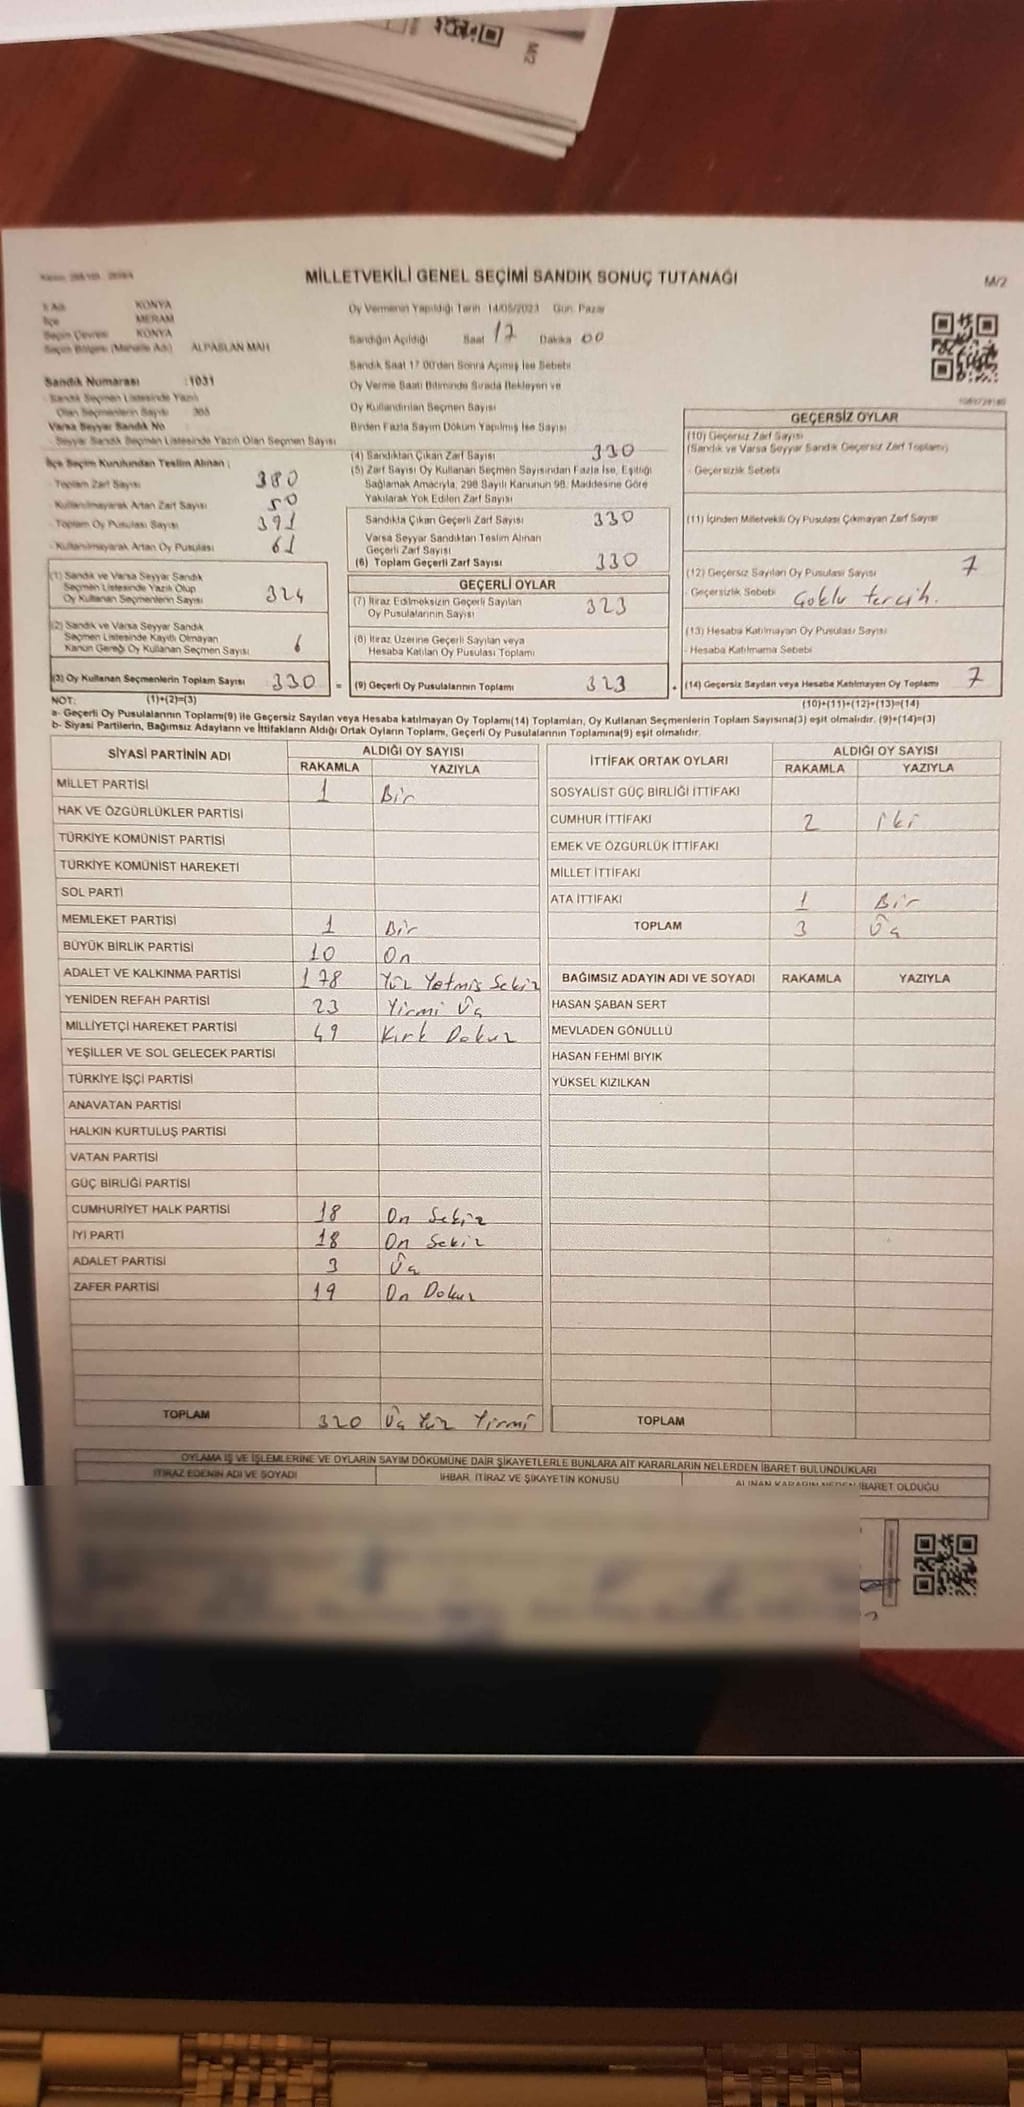 M/2
MİLLETVEKİLİ GENEL SEÇİMİ SANDIK SONUÇ TUTANAĞI
M/2
İl Adı KONYA
İlçe MERAM
Seçim Çevresi KONYA
Seçim Bölgesi (Mahalle Adı) ALPASLAN MAH
Sandık Numarası :1031
- Sandık Seçmen Listesinde Yazılı
Olan Seçmenlerin Sayısı
Varsa Seyyar Sandık No
- Seyyar Sandık Seçmen Listesinde Yazılı Olan Seçmen Sayısı
İlçe Seçim Kurulundan Teslim Alınan ;
- Toplam Zarf Sayısı 380
- Kullanılmayarak Artan Zarf Sayısı 50
- Toplam Oy Pusulası Sayısı 391
- Kullanılmayarak Artan Oy Pusulası 61
(1) Sandık ve Varsa Seyyar Sandık
Seçmen Listesinde Yazılı Olup
Oy Kullanan Seçmenlerin Sayısı 324
(2) Sandık ve Varsa Seyyar Sandık
Seçmen Listesinde Kayıtlı Olmayan
Kanun Gereği Oy Kullanan Seçmen Sayısı 6
(3) Oy Kullanan Seçmenlerin Toplam Sayısı 330 =
Oy Vermenin Yapıldığı Tarih 14/05/2023 Gün: Pazar
Sandığın Açıldığı Saat 17 Dakika 00
Sandık Saat 17.00'den Sonra Açımış İse Sebebi
Oy Verme Saati Bitiminde Sırada Bekleyen ve
Oy Kullandırılan Seçmen Sayısı
Birden Fazla Sayım Döküm Yapılmış İse Sayısı
(4) Sandıktan Çıkan Zarf Sayısı 330
(5) Zarf Sayısı Oy Kullanan Seçmen Sayısından Fazla İse, Eşitliği
Sağlamak Amacıyla, 298 Sayılı Kanunun 98. Maddesine Göre
Yakılarak Yok Edilen Zarf Sayısı
Sandıkta Çıkan Geçerli Zarf Sayısı 330
Varsa Seyyar Sandıktan Teslim Alınan
Geçerli Zarf Sayısı
(6) Toplam Geçerli Zarf Sayısı 330
GEÇERLİ OYLAR
(7) İtiraz Edilmeksizin Geçerli Sayılan
Oy Pusulalarının Sayısı 323
(8) İtiraz Üzerine Geçerli Sayılan veya
Hesaba Katılan Oy Pusulası Toplamı
(9) Geçerli Oy Pusulalarının Toplamı 323 +
GEÇERSİZ OYLAR
(10) Geçersiz Zarf Sayısı
(Sandık ve Varsa Seyyar Sandık Geçersiz Zarf Toplamı)
- Geçersizlik Sebebi
(11) İçinden Milletvekili Oy Pusulası Çıkmayan Zarf Sayısı
(12) Geçersiz Sayılan Oy Pusulası Sayısı 7
- Geçersizlik Sebebi Çoklu tercih.
(13) Hesaba Katılmayan Oy Pusulası Sayısı
- Hesaba Katılmama Sebebi
(14) Geçersiz Sayılan veya Hesaba Katılmayan Oy Toplamı 7
NOT: (1)+(2)=(3)
(10)+(11)+(12)+(13)=(14)
a- Geçerli Oy Pusulalarının Toplamı(9) ile Geçersiz Sayılan veya Hesaba katılmayan Oy Toplamı(14) Toplamları, Oy Kullanan Seçmenlerin Toplam Sayısına(3) eşit olmalıdır. (9)+(14)=(3)
b- Siyasi Partilerin, Bağımsız Adayların ve İttifakların Aldığı Ortak Oyların Toplamı, Geçerli Oy Pusulalarının Toplamına(9) eşit olmalıdır.
SİYASİ PARTİNİN ADI ALDIĞI OY SAYISI
RAKAMLA YAZIYLA
MİLLET PARTİSİ 1 Bir
HAK VE ÖZGÜRLÜKLER PARTİSİ
TÜRKİYE KOMÜNİST PARTİSİ
TÜRKİYE KOMÜNİST HAREKETİ
SOL PARTİ
MEMLEKET PARTİSİ 1 Bir
BÜYÜK BİRLİK PARTİSİ 10 On
ADALET VE KALKINMA PARTİSİ 178 Yüz Yetmiş Sekiz
YENİDEN REFAH PARTİSİ 23 Yirmi Üç
MİLLİYETÇİ HAREKET PARTİSİ 49 Kırk Dokuz
YEŞİLLER VE SOL GELECEK PARTİSİ
TÜRKİYE İŞÇİ PARTİSİ
ANAVATAN PARTİSİ
HALKIN KURTULUŞ PARTİSİ
VATAN PARTİSİ
GÜÇ BİRLİĞİ PARTİSİ
CUMHURİYET HALK PARTİSİ 18 On Sekiz
İYİ PARTİ 18 On Sekiz
ADALET PARTİSİ 3 Üç
ZAFER PARTİSİ 19 On Dokuz
TOPLAM 320 Üç Yüz Yirmi
İTTİFAK ORTAK OYLARI ALDIĞI OY SAYISI
RAKAMLA YAZIYLA
SOSYALİST GÜÇ BİRLİĞİ İTTİFAKI
CUMHUR İTTİFAKI 2 iki
EMEK VE ÖZGÜRLÜK İTTİFAKI
MİLLET İTTİFAKI
ATA İTTİFAKI 1 Bir
TOPLAM 3 Üç
BAĞIMSIZ ADAYIN ADI VE SOYADI RAKAMLA YAZIYLA
HASAN ŞABAN SERT
MEVLADEN GÖNÜLLÜ
HASAN FEHMİ BIYIK
YÜKSEL KIZILKAN
TOPLAM
OYLAMA İŞ VE İŞLEMLERİNE VE OYLARIN SAYIM DÖKÜMÜNE DAİR ŞİKAYETLERLE BUNLARA AİT KARARLARIN NELERDEN İBARET BULUNDUKLARI
İTİRAZ EDENİN ADI VE SOYADI İHBAR, İTİRAZ VE ŞİKAYETİN KONUSU ALINAN KARARIN NEDEN İBARET OLDUĞU